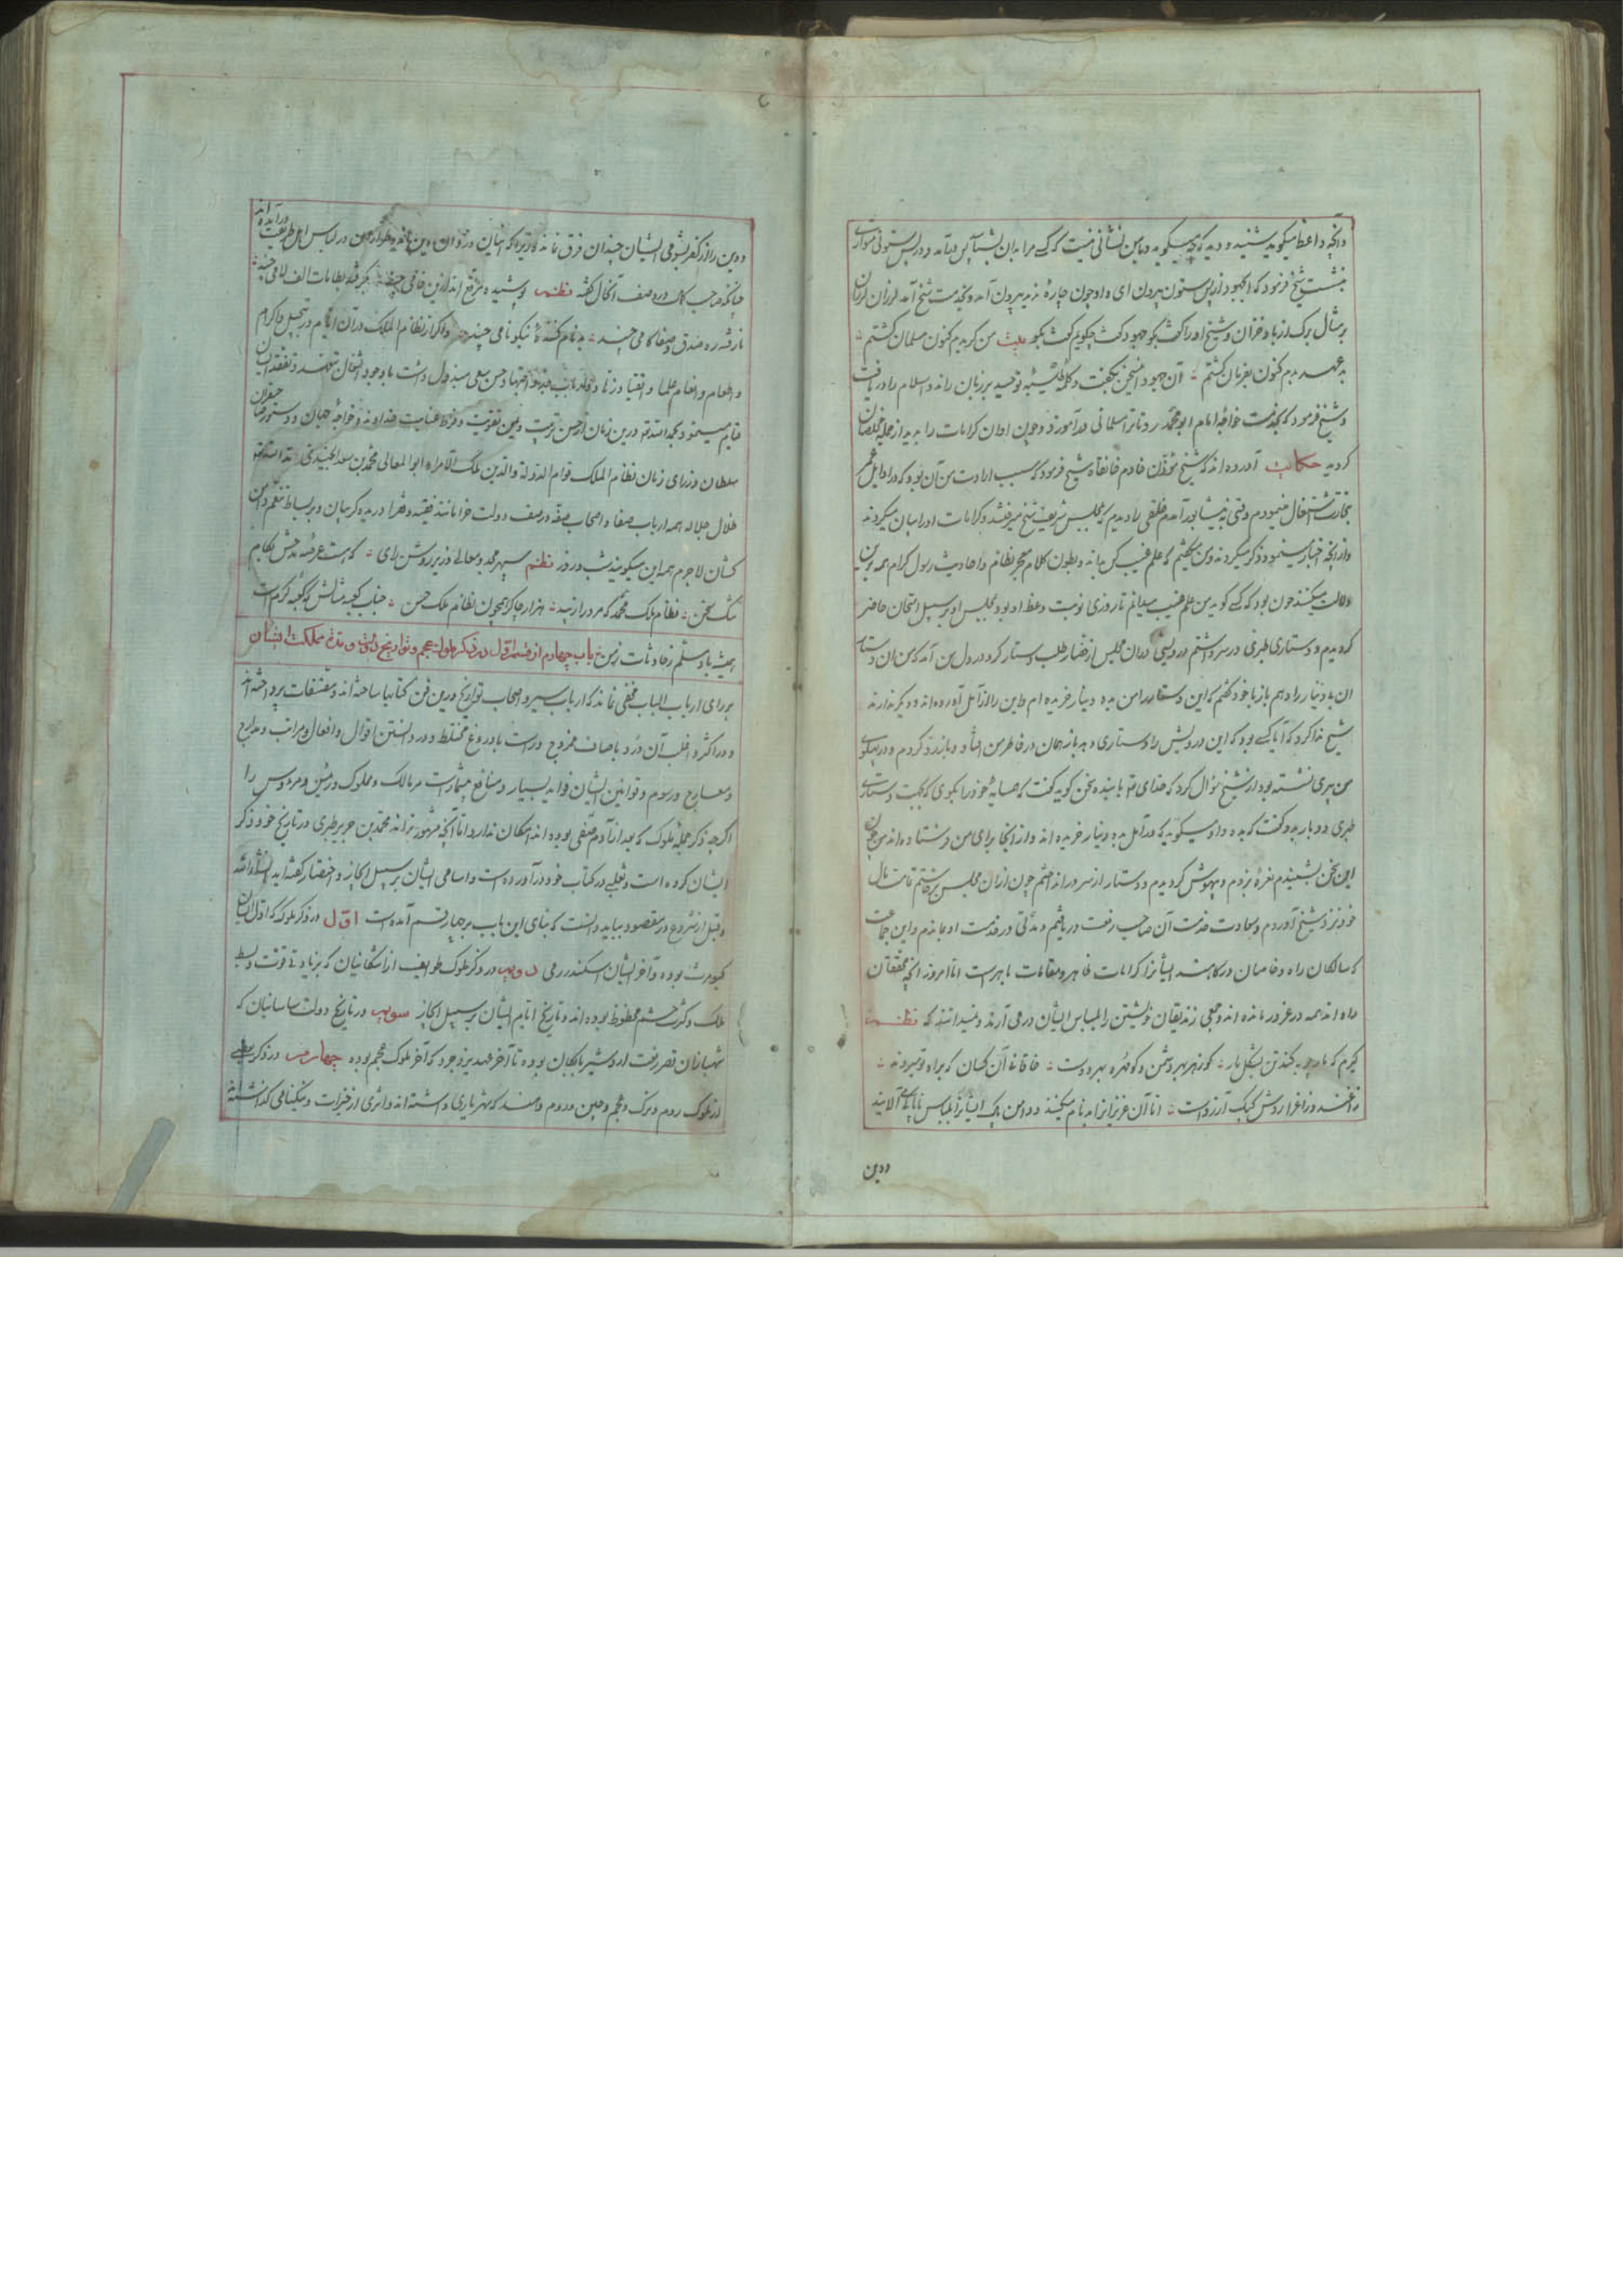 و آنچه واعظ میگوید بشنید و دید که چه میگوید و با من نشانی نیست که کسی مرا بدان بشناسد پس در آمد و در پس ستونی متواری
بنشست شیخ فرمود که ای جهود از پس ستون بیرون آی و او چون چاره ندید بیرون آمد و بخدمت شیخ آمد لرزان لرزان
بر مثال برک از باد خزان و شیخ او را گفت بگو جهود گفت چگویم گفت بگو بیت من کبر بدم کنون مسلمان گشتم
بد عهد بدم کنون بفرمان گشتم آن جهود این سخن بگفت و کلمه طیبه توحید بر زبان راند و اسلام را دریافت
و شیخ فرمود که بخدمت خواجه امام ابو محمد رو تا ترا مسلمانی در آموزد و چون او آن کرامات را بدید از جمله مخلصان
کردید حکایت آورده اند که شیخ مؤذن خادم خانقاه شیخ فرمود که سبب ارادت من آن بود که در اوایل عمر
بتجارت اشتغال مینمودم وقتی به نیشابور آمدم خلقی را دیدم که بمجلس شریف شیخ میرفتند و کرامات او را بیان میکردند
و از آنچه اخبار مینمود ذکر میکردند و من میگفتم که علم غیب کس نداند و بطون کلام معجز نظام و احادیث رسول کرام همه برین
دلالت میکنند چون بود که کسی گوید من علم غیب میدانم تا روزی نوبت وعظ او بود بمجلس او بر سبیل امتحان حاضر
کردیدم و دستاری طبری در سر داشتم درویشی در آن مجلس از حضار طلب دستار کرد در دل من آمد که من آن دستار
بدهم باز با خود گفتم که این دستار را من بده دینار خریده ام و این را از آمل آورده اند و دیگر ندارند
شیخ ندا کرد که آیا کسی بود که این درویش را دستاری دهد باز همان در خاطر من افتاد و باز رد کردم و در پهلوی
من پیری نشسته بود از شیخ سؤال کرد که خدای تعالی با بنده سخن گوید گفت که همسایه خود را بگوی که بجهت دستاری
طبری دو بار بدو گفت که بده و او میگوید که در آمل بده دینار خریده اند و از آنجا برای من فرستاده اند من چون
این سخن بشنیدم نعره بزدم و بیهوش کردیدم و دستار از سر در انداختم چون از آن مجلس برخاستم تمامت مال
خود نزد شیخ آوردم و بسعادت خدمت آن صاحب رفعت دریافتم و مدتی در خدمت او بماندم و این جماعت
که سالکان راه و خاصان درگاهند ایشانرا کرامات ظاهر و مقامات باهر است اما امروز آنچه محققان
راه اند همه در غرور مانده اند و جمعی زندیقان خویشتن را بلباس ایشان در می آرند و نمیدانند که نظم
گیرم که مارچوبه کند تن بشکل مار کو زهر بهر دشمن و کو مهره بهر دوست خاقانیا آن کسان که براه تو میروند
زاغند و زاغ را روش کبک آرزوست اما آن عزیزانرا بدنام میکنند و دامن پاک ایشانرا بلباس ناپاک می آلایند
ودین
ودین را از کفر بشومی ایشان چندان فرق نماند زیرا که اینان در لباس اهل طریقت
درآمده اند
چنانکه صاحب کمال در وصف آنحال گفته نظم پوشیده مرقع اند ازین خامی چند بگرفته بطامات الف لامی چند
نارفته ره صدق و صفا گامی چند بدنام کننده نیکو نامی چند و اگر از نظام الملک در آن ایام در تبجیل و اکرام
و اطعام و انعام علما و اتقیا و زهاد حسن سعی مبذول داشت با وجود اشتغال و تفقد ایشان
قیام مینمود بحمد الله درین زمان از حسن تربیت و یمن تقویت و فرط عنایت خداوند و خواجه جهان دستور صاحبقران
سلطان وزرای زمان نظام الملک قوام الدوله والدین ملک الامراء ابو المعالی محمد بن سعد الجنیدی
ظلال جلاله همه ارباب صفا و اصحاب صفه در صف دولت خرامانند فقیه و فقرا دریده گریبان و بر بساط تنعم دامن
کشان لاجرم همه این میگویند شب و روز نظم سپهر مجد و معالی وزیر روشن رای که هست عرصه مدحش بکام
سخن نظام ملک محمد که مر او را زیبد هزار چاکر همچون نظام ملک حسن جناب کعبه مثالش که کعبه کرم است
همیشه باد مسلم ز حادثات زمن باب چهارم از قسم اول در ذکر ملوک عجم و تواریخ دولت و مدت مملکت ایشان
بر رای ارباب الباب مخفی نماند که ارباب سیر و اصحاب تواریخ درین فن کتابها ساخته اند و مصنفات پرداخته اند
و در اکثر و اغلب آن درد با صاف ممزوج و راست با دروغ مختلط و در دانستن اقوال و افعال و مراتب و مدارج
و معارج و رسوم و قوانین ایشان فواید بسیار و منافع بیشمار است مر مالک و مملوک و رئیس و مرؤوس را
اگرچه ذکر جمله ملوک که بعد از آدم صفی بوده اند امکان ندارد اما آنچه مشهورترند محمد بن جریر طبری در تاریخ خود ذکر
ایشان کرده است و ثعلبی در کتاب خود در آورده است و اسامی ایشان بر سبیل ایجاز و اختصار گفته آید انشاء الله
و قبل از شروع در مقصود بباید دانست که بنای این باب بر چهار قسم آمده است اول در ذکر ملوک که اول ایشان
کیومرث بوده و آخر ایشان اسکندر رومی دوم در ذکر ملوک طوایف از اشکانیان که بزیادتی قوت و بسط
ملک و کثرت حشم محظوظ بوده اند و تاریخ ایام ایشان بر سبیل ایجاز سوم در تاریخ دولت ساسانیان که
شهبازان قصر رفعت اردشیر بابکان بوده تا آخر عهد یزدجرد که آخر ملوک عجم بوده چهارم در ذکر بعضی
از ملوک روم و ترک و عجم و چین و روم و هند که شهریاری داشته اند و اثری از خیرات و نیکنامی گذاشته اند